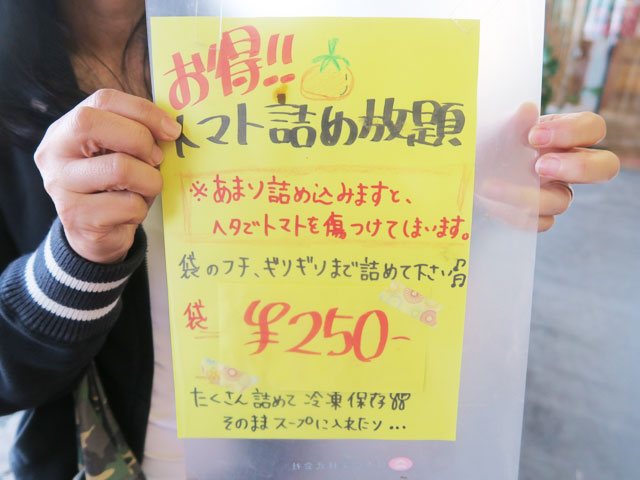 お得!!
トマト詰め放題
※あまり詰め込みますと、
ヘタでトマトを傷つけてしまいます。
袋のフチ、ギリギリまで詰めて下さい
袋 ¥250-
たくさん詰めて冷凍保存
そのままスープに入れたり…